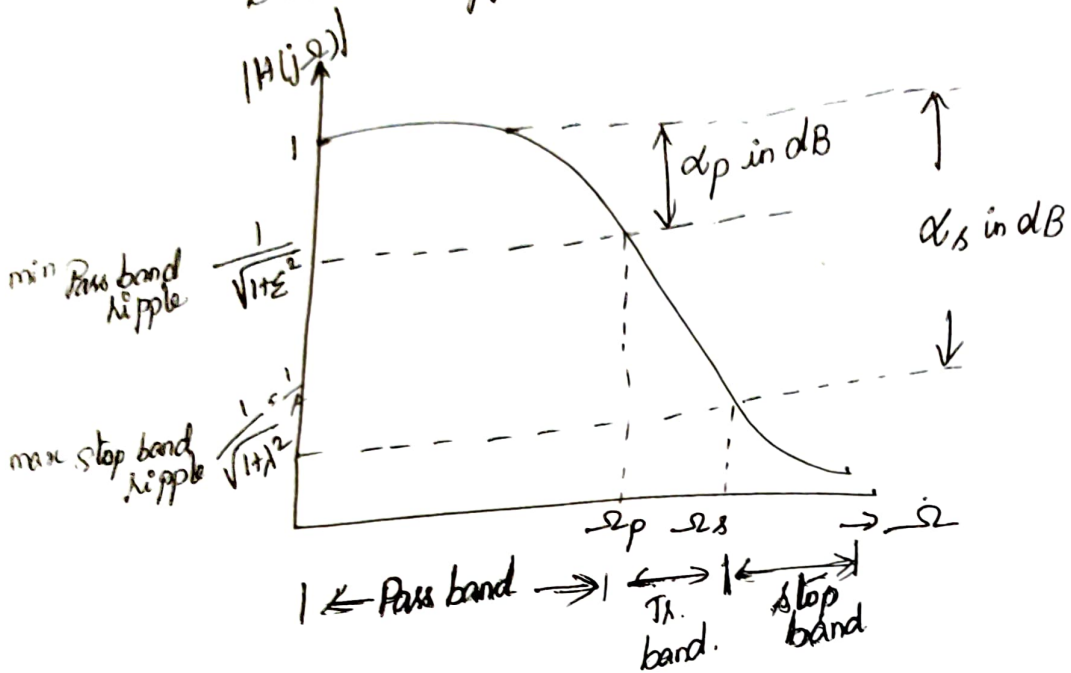 |H(jΩ)|
1
αp in dB
αs in dB
min Pass band
ripple
1/√1+ε²
max stop band
ripple
1/√1+λ²
Ωp Ωs → Ω
Pass band
Tr.
band.
stop
band